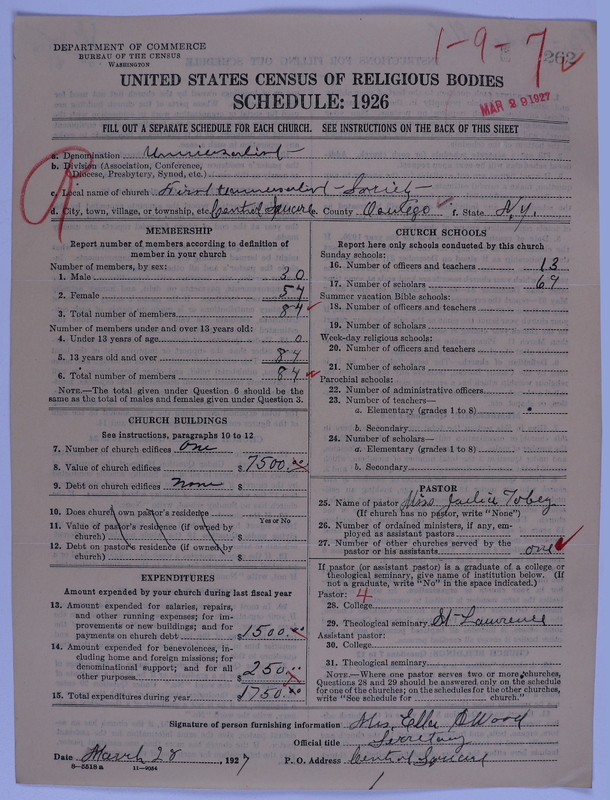 DEPARTMENT OF COMMERCE
BUREAU OF THE CENSUS
WASHINGTON
1-9-7
262
UNITED STATES CENSUS OF RELIGIOUS BODIES
SCHEDULE: 1926
MAR 29 1927
FILL OUT A SEPARATE SCHEDULE FOR EACH CHURCH. SEE INSTRUCTIONS ON THE BACK OF THIS SHEET
a. Denomination Universalist
b. Division (Association, Conference, Diocese, Presbytery, Synod, etc.)
c. Local name of church First Universalist Society
d. City, town, village, or township, etc. Central Square e. County Oswego f. State N.Y.
MEMBERSHIP
Report number of members according to definition of member in your church
Number of members, by sex:
1. Male 30
2. Female 54
3. Total number of members 84
Number of members under and over 13 years old:
4. Under 13 years of age 0
5. 13 years old and over 84
6. Total number of members 84
NOTE.—The total given under Question 6 should be the same as the total of males and females given under Question 3.
CHURCH BUILDINGS
See instructions, paragraphs 10 to 12
7. Number of church edifices One
8. Value of church edifices $ 7500.00
9. Debt on church edifices None $
10. Does church own pastor's residence
Yes or No
11. Value of pastor's residence (if owned by church) $
12. Debt on pastor's residence (if owned by church) $
EXPENDITURES
Amount expended by your church during last fiscal year
13. Amount expended for salaries, repairs, and other running expenses; for improvements or new buildings; and for payments on church debt $ 1500.00
14. Amount expended for benevolences, including home and foreign missions; for denominational support; and for all other purposes $ 250.00
15. Total expenditures during year $ 1750.00
CHURCH SCHOOLS
Report here only schools conducted by this church
Sunday schools:
16. Number of officers and teachers 13
17. Number of scholars 69
Summer vacation Bible schools:
18. Number of officers and teachers
19. Number of scholars
Week-day religious schools:
20. Number of officers and teachers
21. Number of scholars
Parochial schools:
22. Number of administrative officers
23. Number of teachers—
a. Elementary (grades 1 to 8)
b. Secondary
24. Number of scholars—
a. Elementary (grades 1 to 8)
b. Secondary
PASTOR
25. Name of pastor Miss Tobey
(If church has no pastor, write "None")
26. Number of ordained ministers, if any, employed as assistant pastors
27. Number of other churches served by the pastor or his assistants one
If pastor (or assistant pastor) is a graduate of a college or theological seminary, give name of institution below. (If not a graduate, write "No" in the space indicated.)
Pastor: 4
28. College
29. Theological seminary St Lawrence
Assistant pastor:
30. College
31. Theological seminary
NOTE.—Where one pastor serves two or more churches, Questions 28 and 29 should be answered only on the schedule for one of the churches; on the schedules for the other churches, write "See schedule for church."
Signature of person furnishing information Mrs. Ella D Wood
Official title Secretary
Date March 28, 1927 P. O. Address Central Square
8—5518 a 11—9054